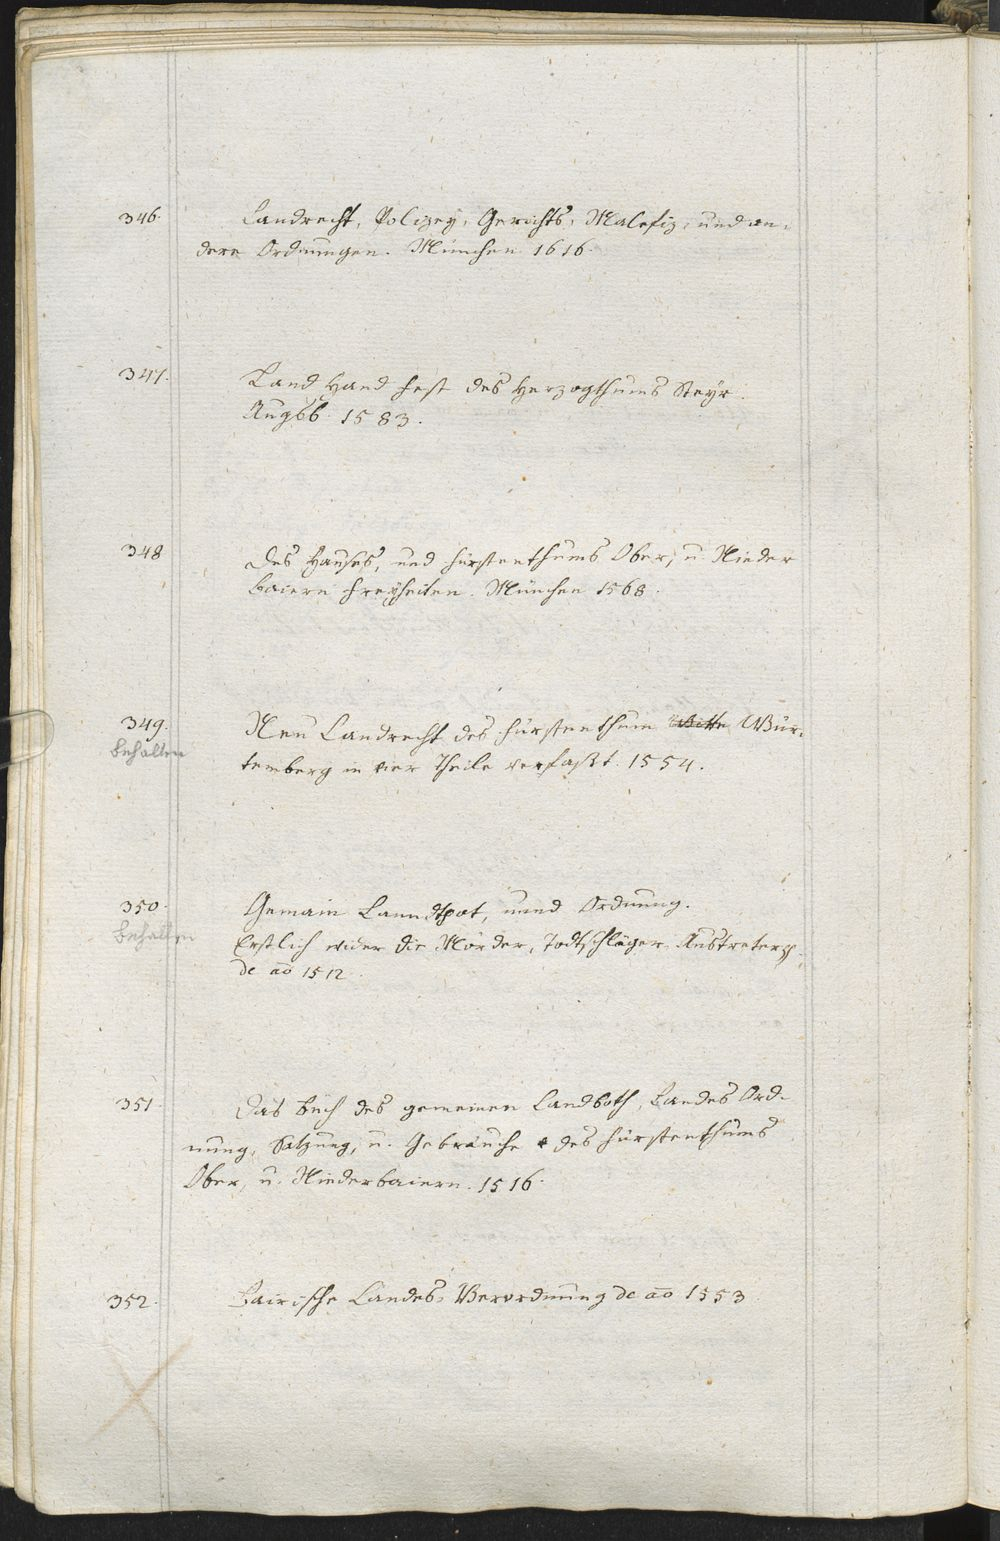 346. Landrecht, Polizey, Gerichts, Malefiz, und an-
dere Ordnungen. München 1616.
347. Land Hand fest des Herzogthums Steyr.
Augsb. 1583.
348 Des Hauses, und Fürstenthums Ober, u. Nieder
baiern Freyheiten. München 1568.
349. Neu Landrecht des Fürstenthum Würt-
behalten
temberg in vier Theile verfaßt. 1554.
350. Gemain Lanndtpot, unnd Ordnung.
behalten
Erstlich wider die Mörder, Todtschläger, Austreter
de aō 1512
351. Das buch des gemeinen Landboth, Landes Ord-
nung, Satzung, u. Gebräuche des Fürstenthums
Ober, u. Niederbaiern. 1516.
352. Bairische Landes, Verordnung de aō 1553